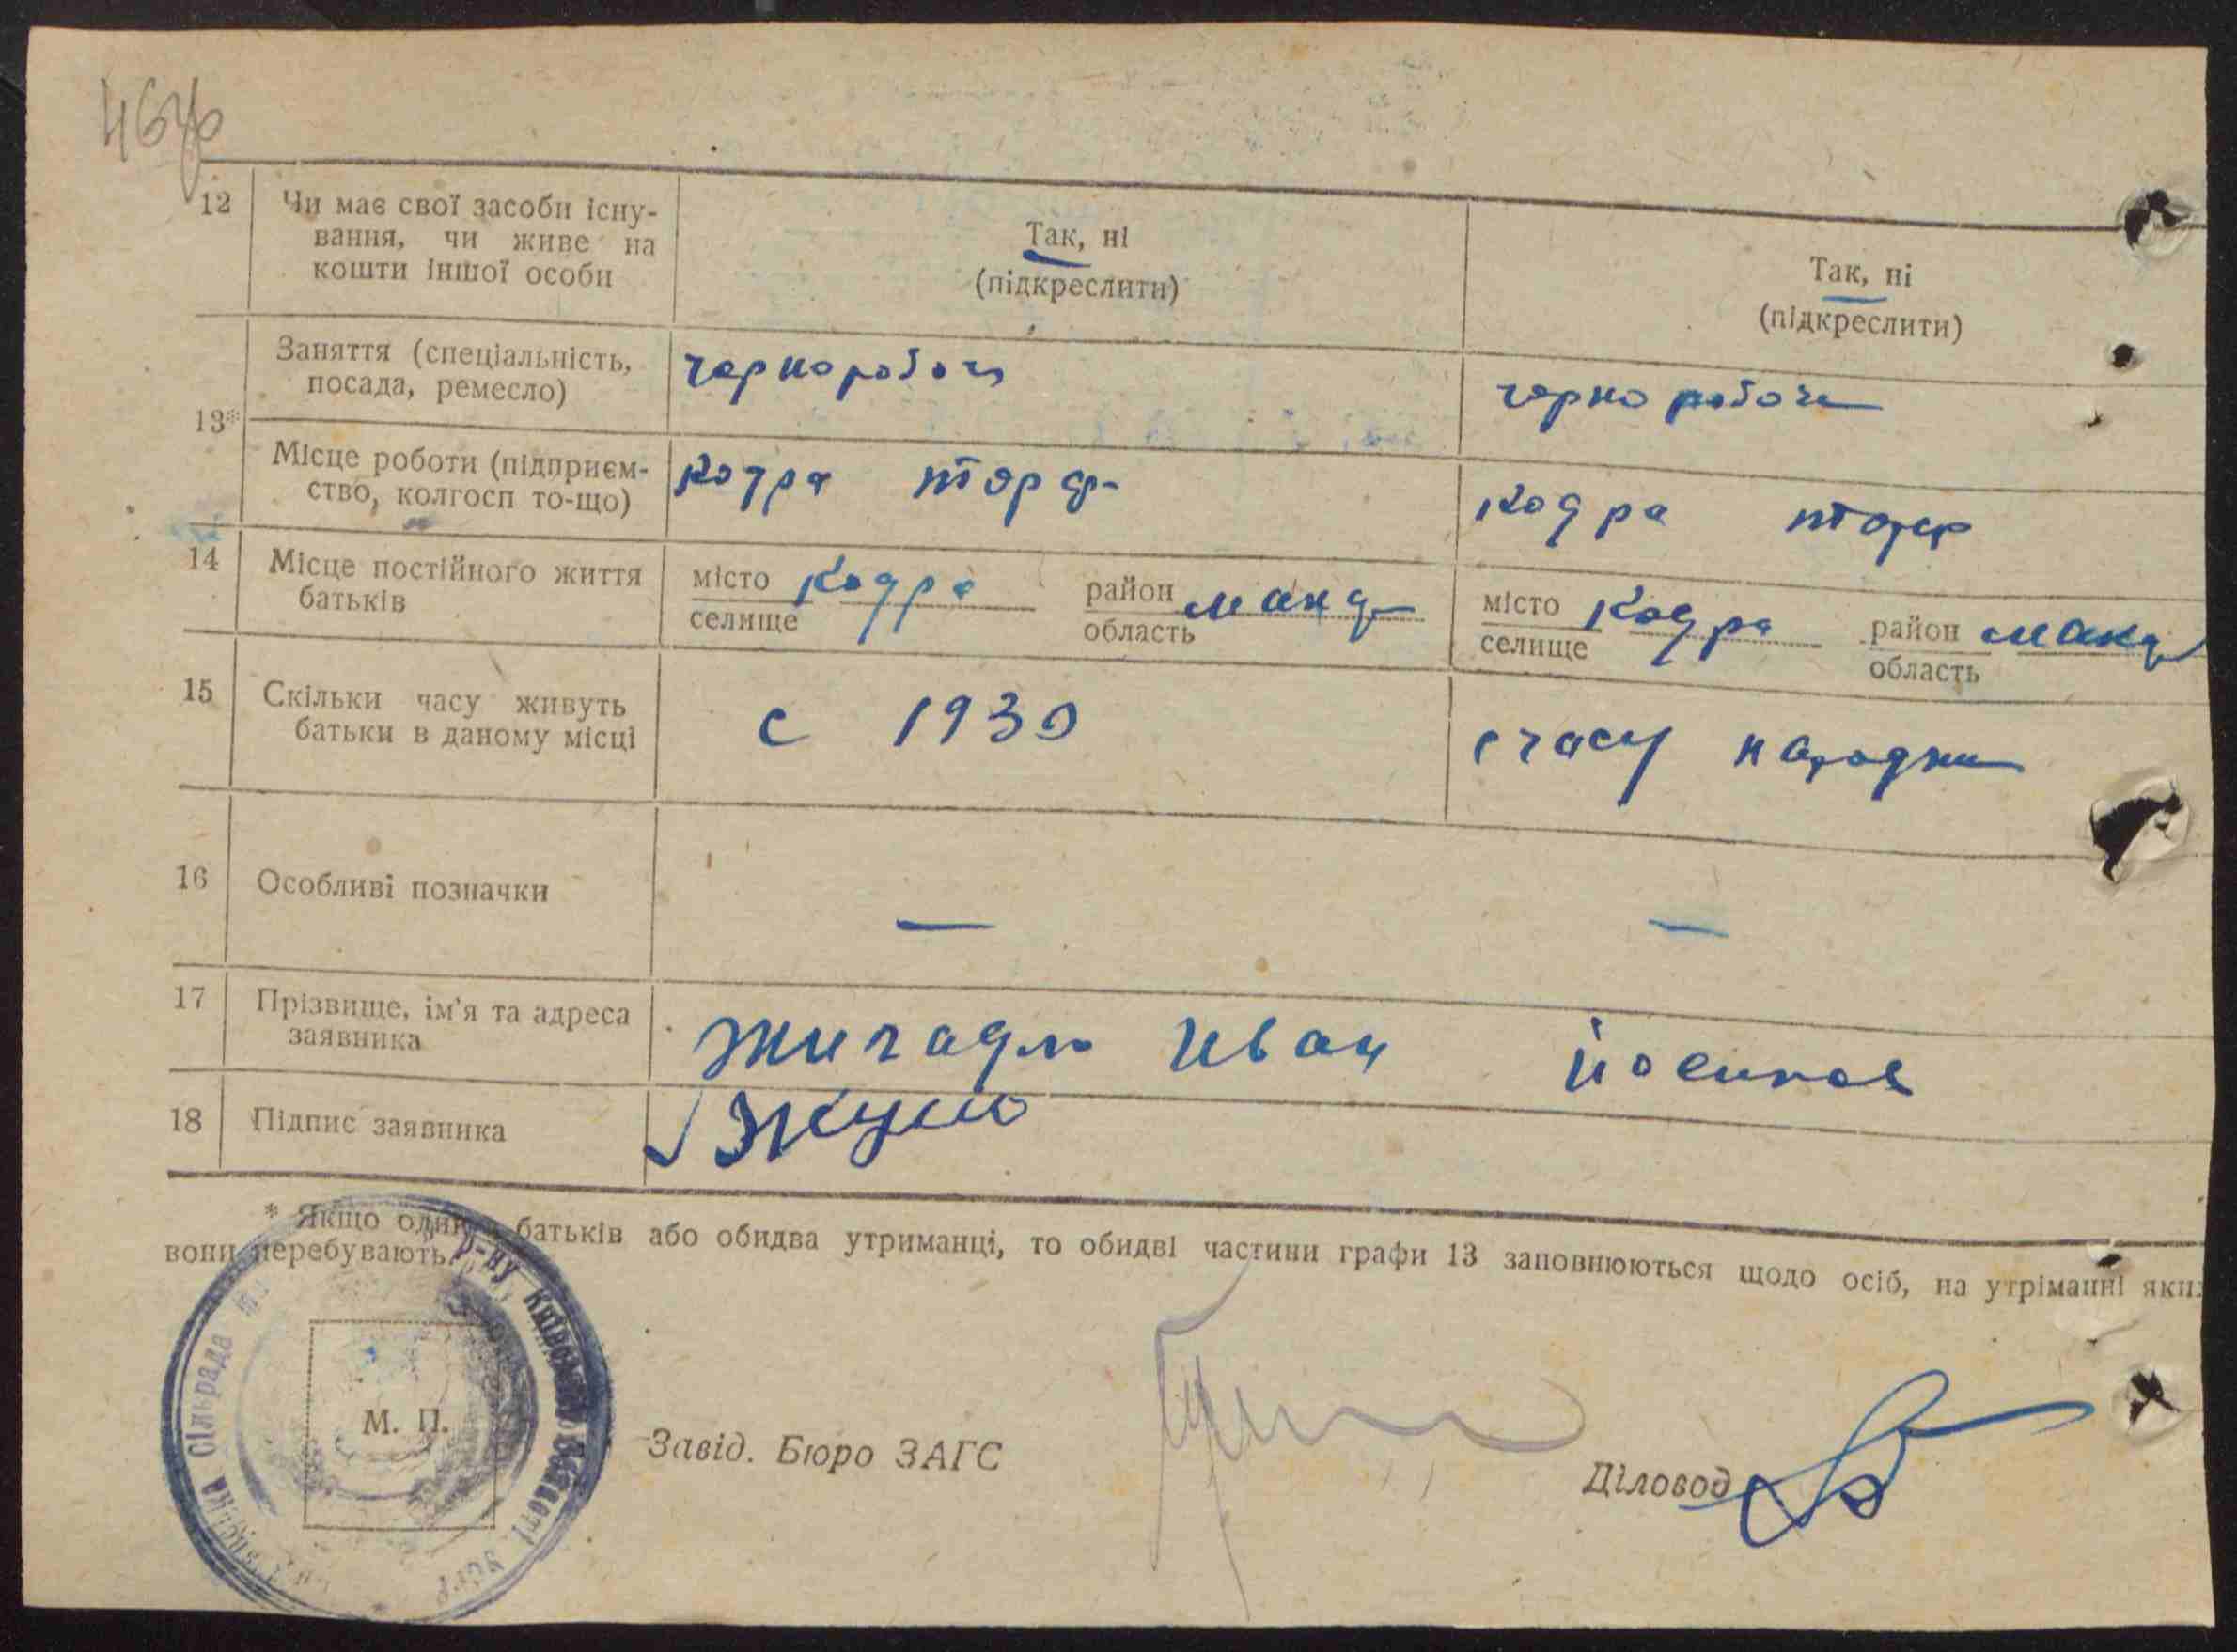 12 Чи має свої засоби існу-
вання, чи живе на
кошти іншої особи
Так, ні
(підкреслити)
Так, ні
(підкреслити)
13*
Заняття (спеціальність,
посада, ремесло)
чорноробоч
чорно робоч
Місце роботи (підприєм-
ство, колгосп то-що)
кодра торф
кодра торф
14 Місце постійного життя
батьків
місто кодра район макар
селище область
місто кодра район макар
селище область
15 Скільки часу живуть
батьки в даному місці
с 1930
с часу народжен
16 Особливі позначки
— —
17 Прізвище, ім'я та адреса
заявника
Иван Йосипов
18 Підпис заявника
* Якщо один батьків або обидва утриманці, то обидві частини графи 13 заповнюються щодо осіб, на утріманні яких
вони перебувають.
сільрада р-ну, Київської області УСРР
М. П.
Завід. Бюро ЗАГС
Діловод